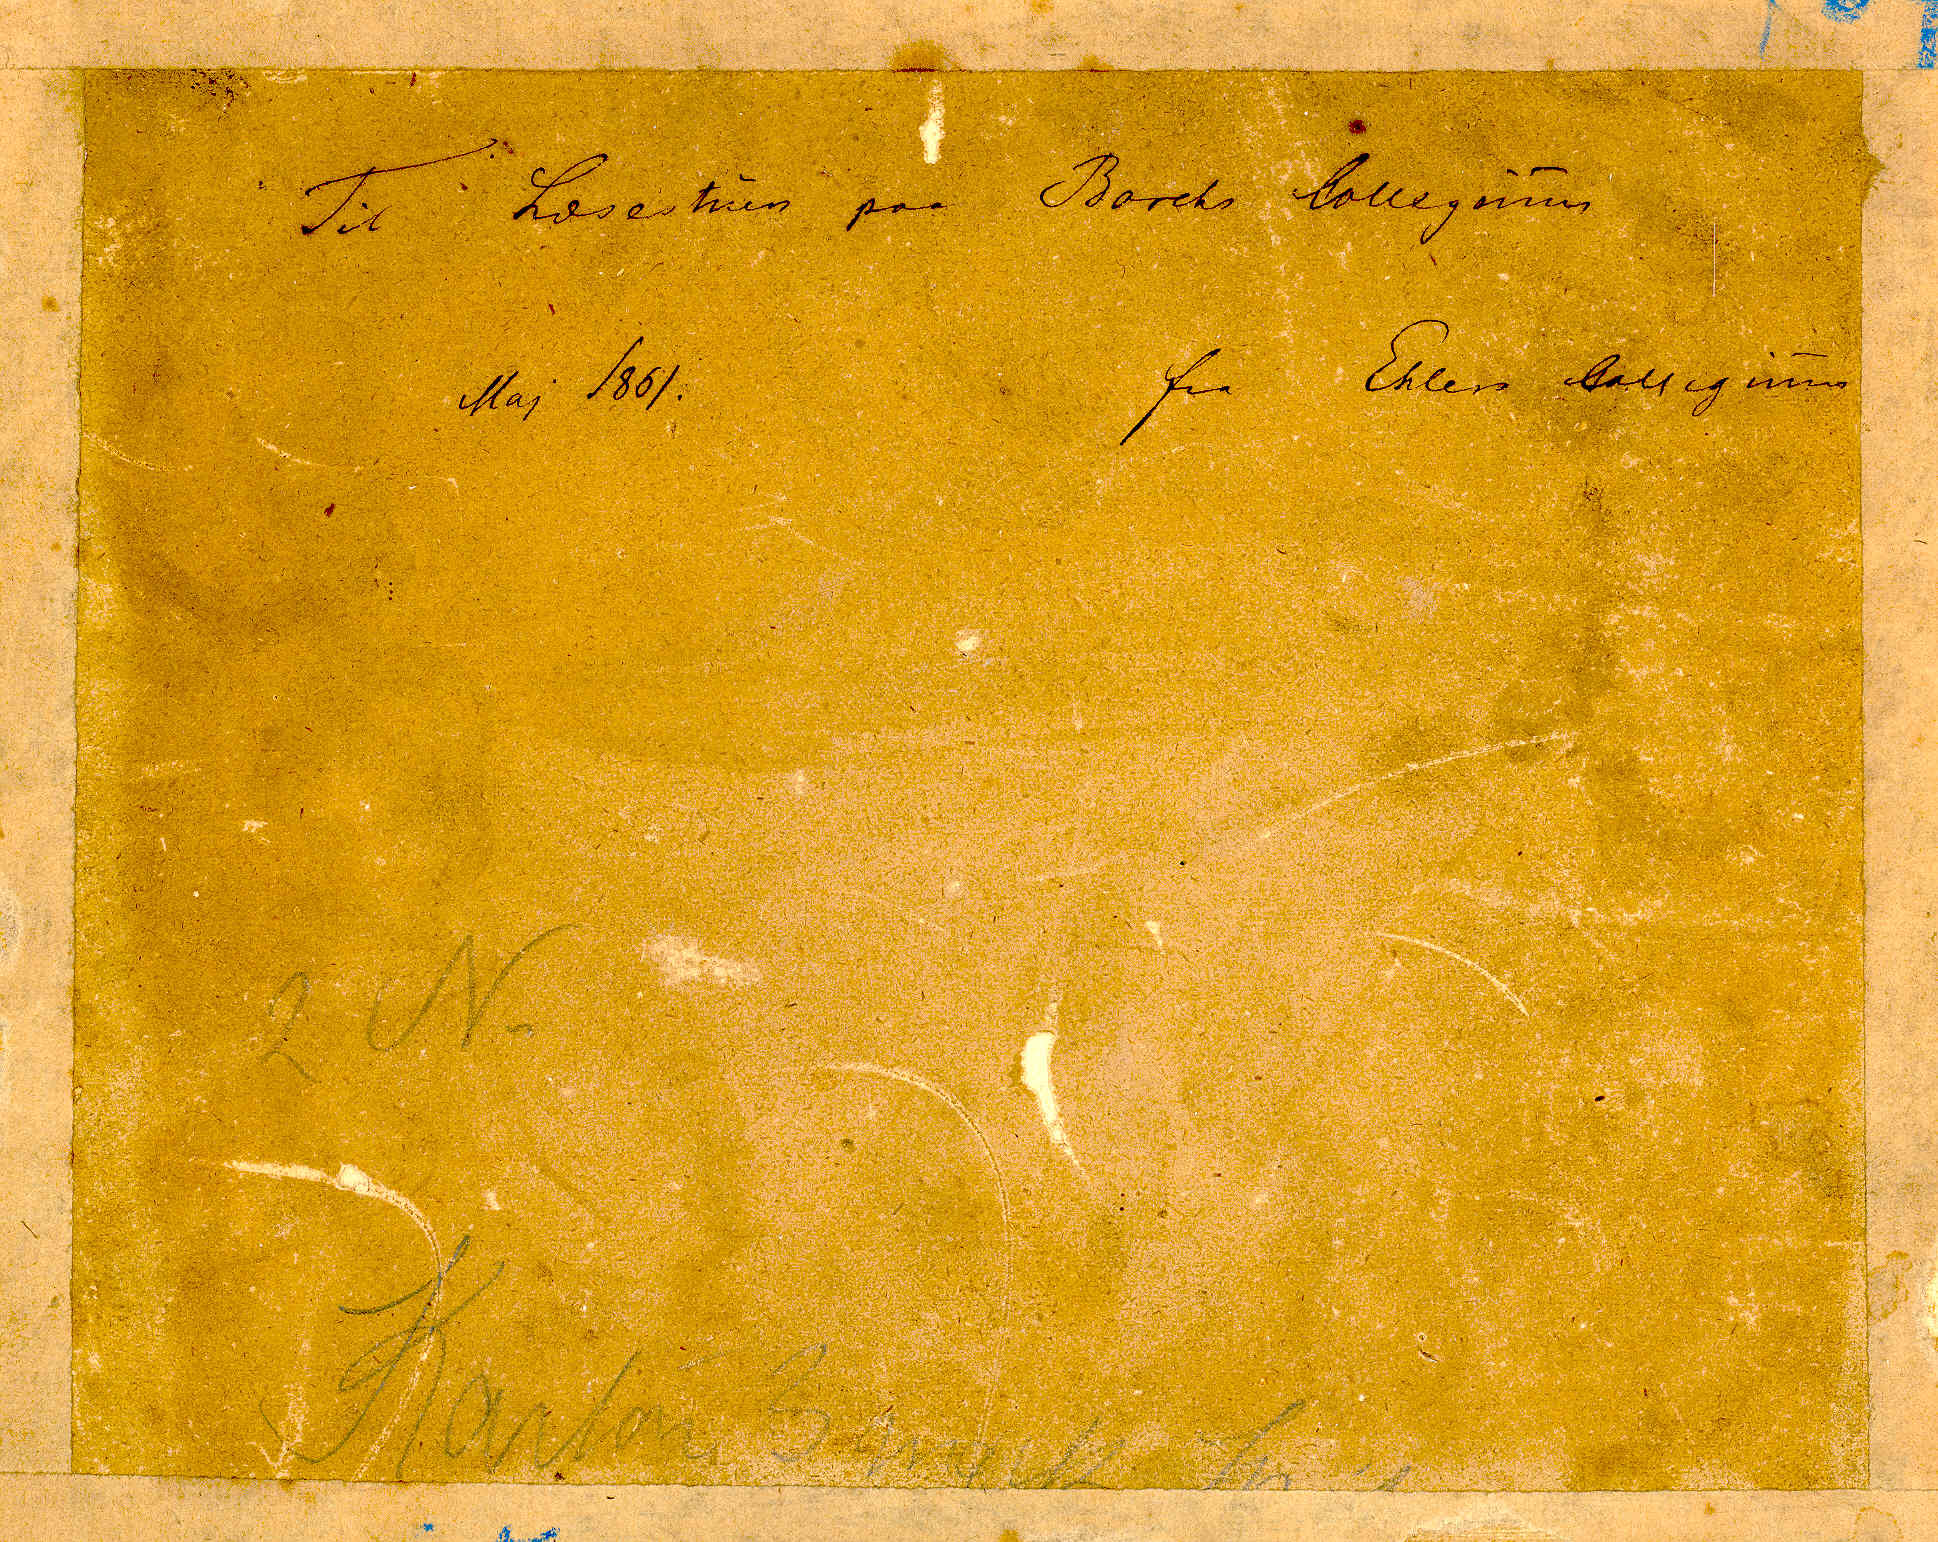 Til Læsestuen paa Borchs Collegium
Maj 1861. fra Ehlers Collegium
2 N.
Karton